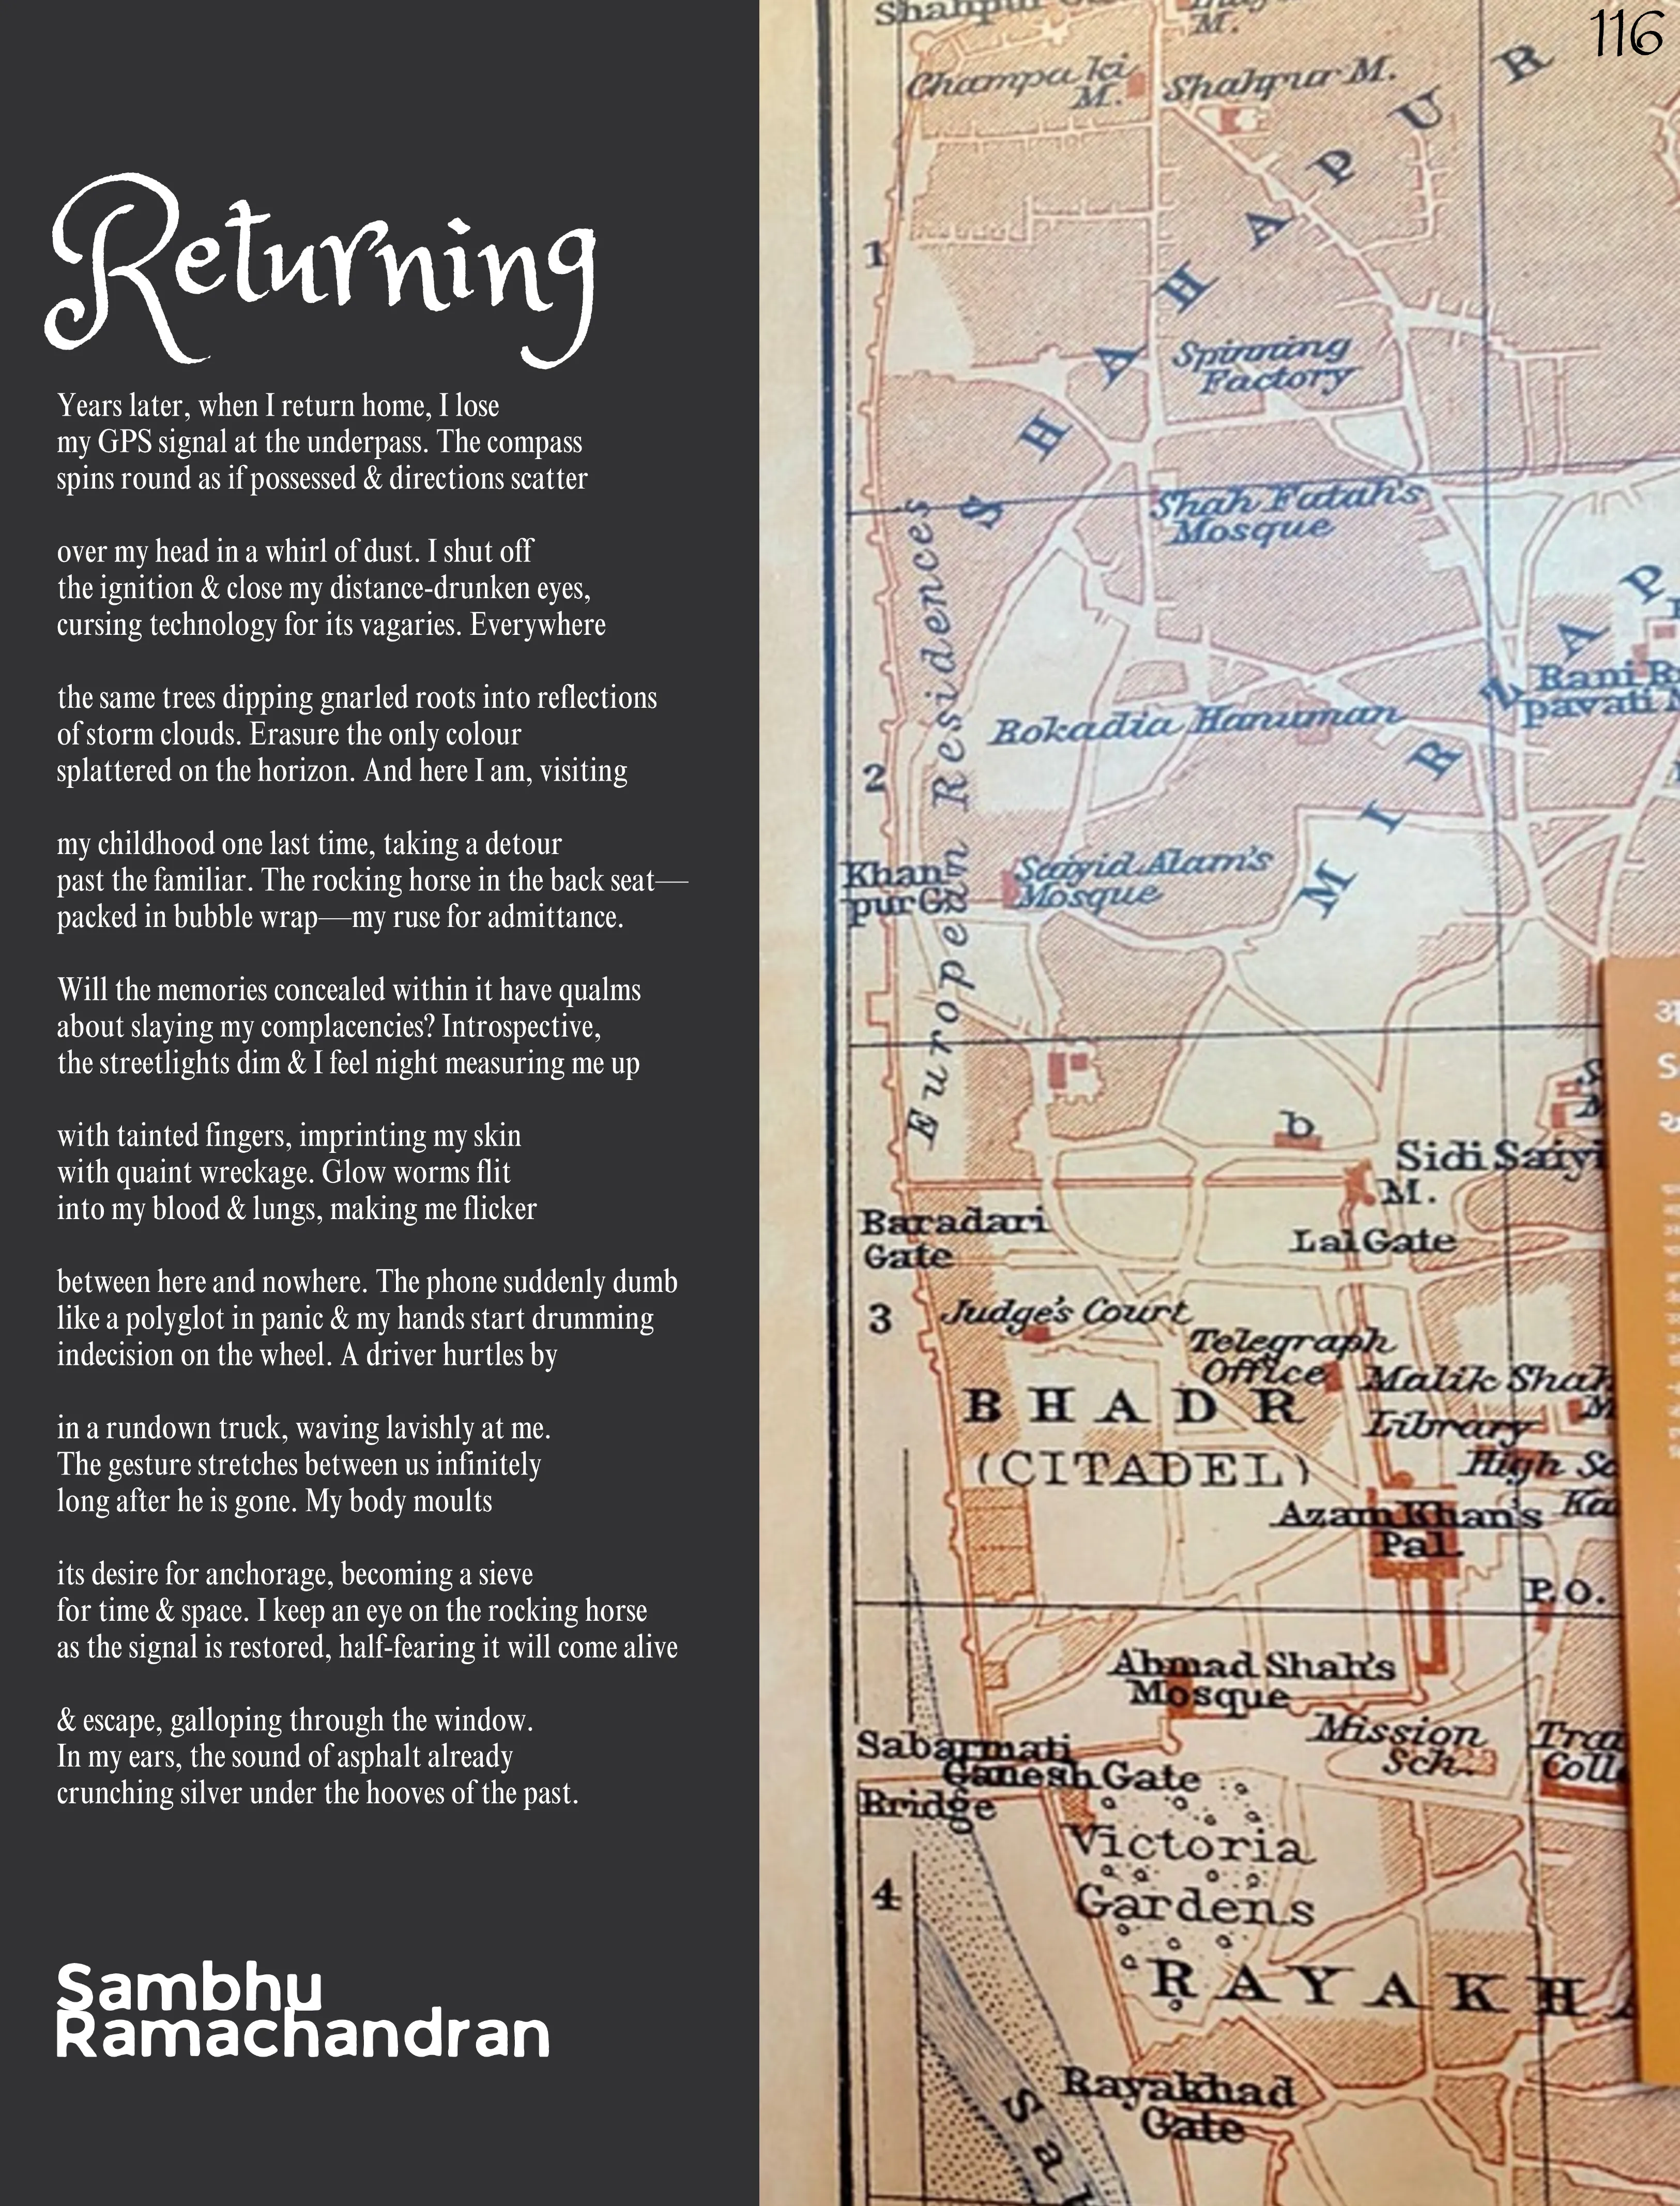 116
Returning
Years later, when I return home, I lose
my GPS signal at the underpass. The compass
spins round as if possessed & directions scatter
over my head in a whirl of dust. I shut off
the ignition & close my distance-drunken eyes,
cursing technology for its vagaries. Everywhere
the same trees dipping gnarled roots into reflections
of storm clouds. Erasure the only colour
splattered on the horizon. And here I am, visiting
my childhood one last time, taking a detour
past the familiar. The rocking horse in the back seat—
packed in bubble wrap—my ruse for admittance.
Will the memories concealed within it have qualms
about slaying my complacencies? Introspective,
the streetlights dim & I feel night measuring me up
with tainted fingers, imprinting my skin
with quaint wreckage. Glow worms flit
into my blood & lungs, making me flicker
between here and nowhere. The phone suddenly dumb
like a polyglot in panic & my hands start drumming
indecision on the wheel. A driver hurtles by
in a rundown truck, waving lavishly at me.
The gesture stretches between us infinitely
long after he is gone. My body moults
its desire for anchorage, becoming a sieve
for time & space. I keep an eye on the rocking horse
as the signal is restored, half-fearing it will come alive
& escape, galloping through the window.
In my ears, the sound of asphalt already
crunching silver under the hooves of the past.
Sambhu
Ramachandran
Shahpur
M.
Champa ki
M.
Shahpur M.
SHAHAPUR
1
Spinning
Factory
Shah Fatah's
Mosque
European Residences
MIRZAP
Rani R
pavati
Bokadia Hanuman
2
Khan
pur G
Saiyid Alam's
Mosque
b
Sidi Saiyi
M.
Baradari
Gate
Lal Gate
3
Judge's Court
Telegraph
Office
Malik Shah
M
BHADR
(CITADEL)
Library
High Sc
Azam Khan's
Pal.
Ka
P.O.
Ahmad Shah's
Mosque
Mission
Sch.
Tra
Coll
Sabarmati
Bridge
Ganesh Gate
Victoria
Gardens
4
RAYAKHA
Rayakhad
Gate
Sa